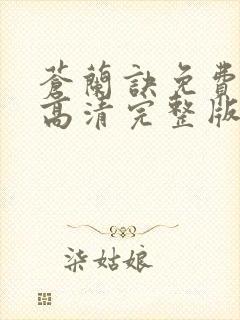 蒼蘭訣免費
高清完整版
柒姑娘